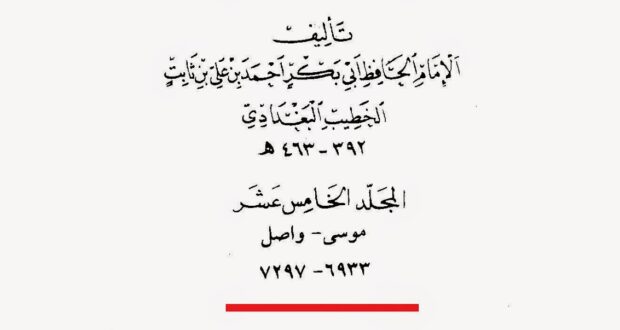 تأليف
الإمام الحافظ أبي بكر أحمد بن علي بن ثابت
الخطيب البغدادي
٣٩٢ - ٤٦٣ هـ
المجلد الخامس عشر
موسى - واصل
٦٩٣٣ - ٧٢٩٧